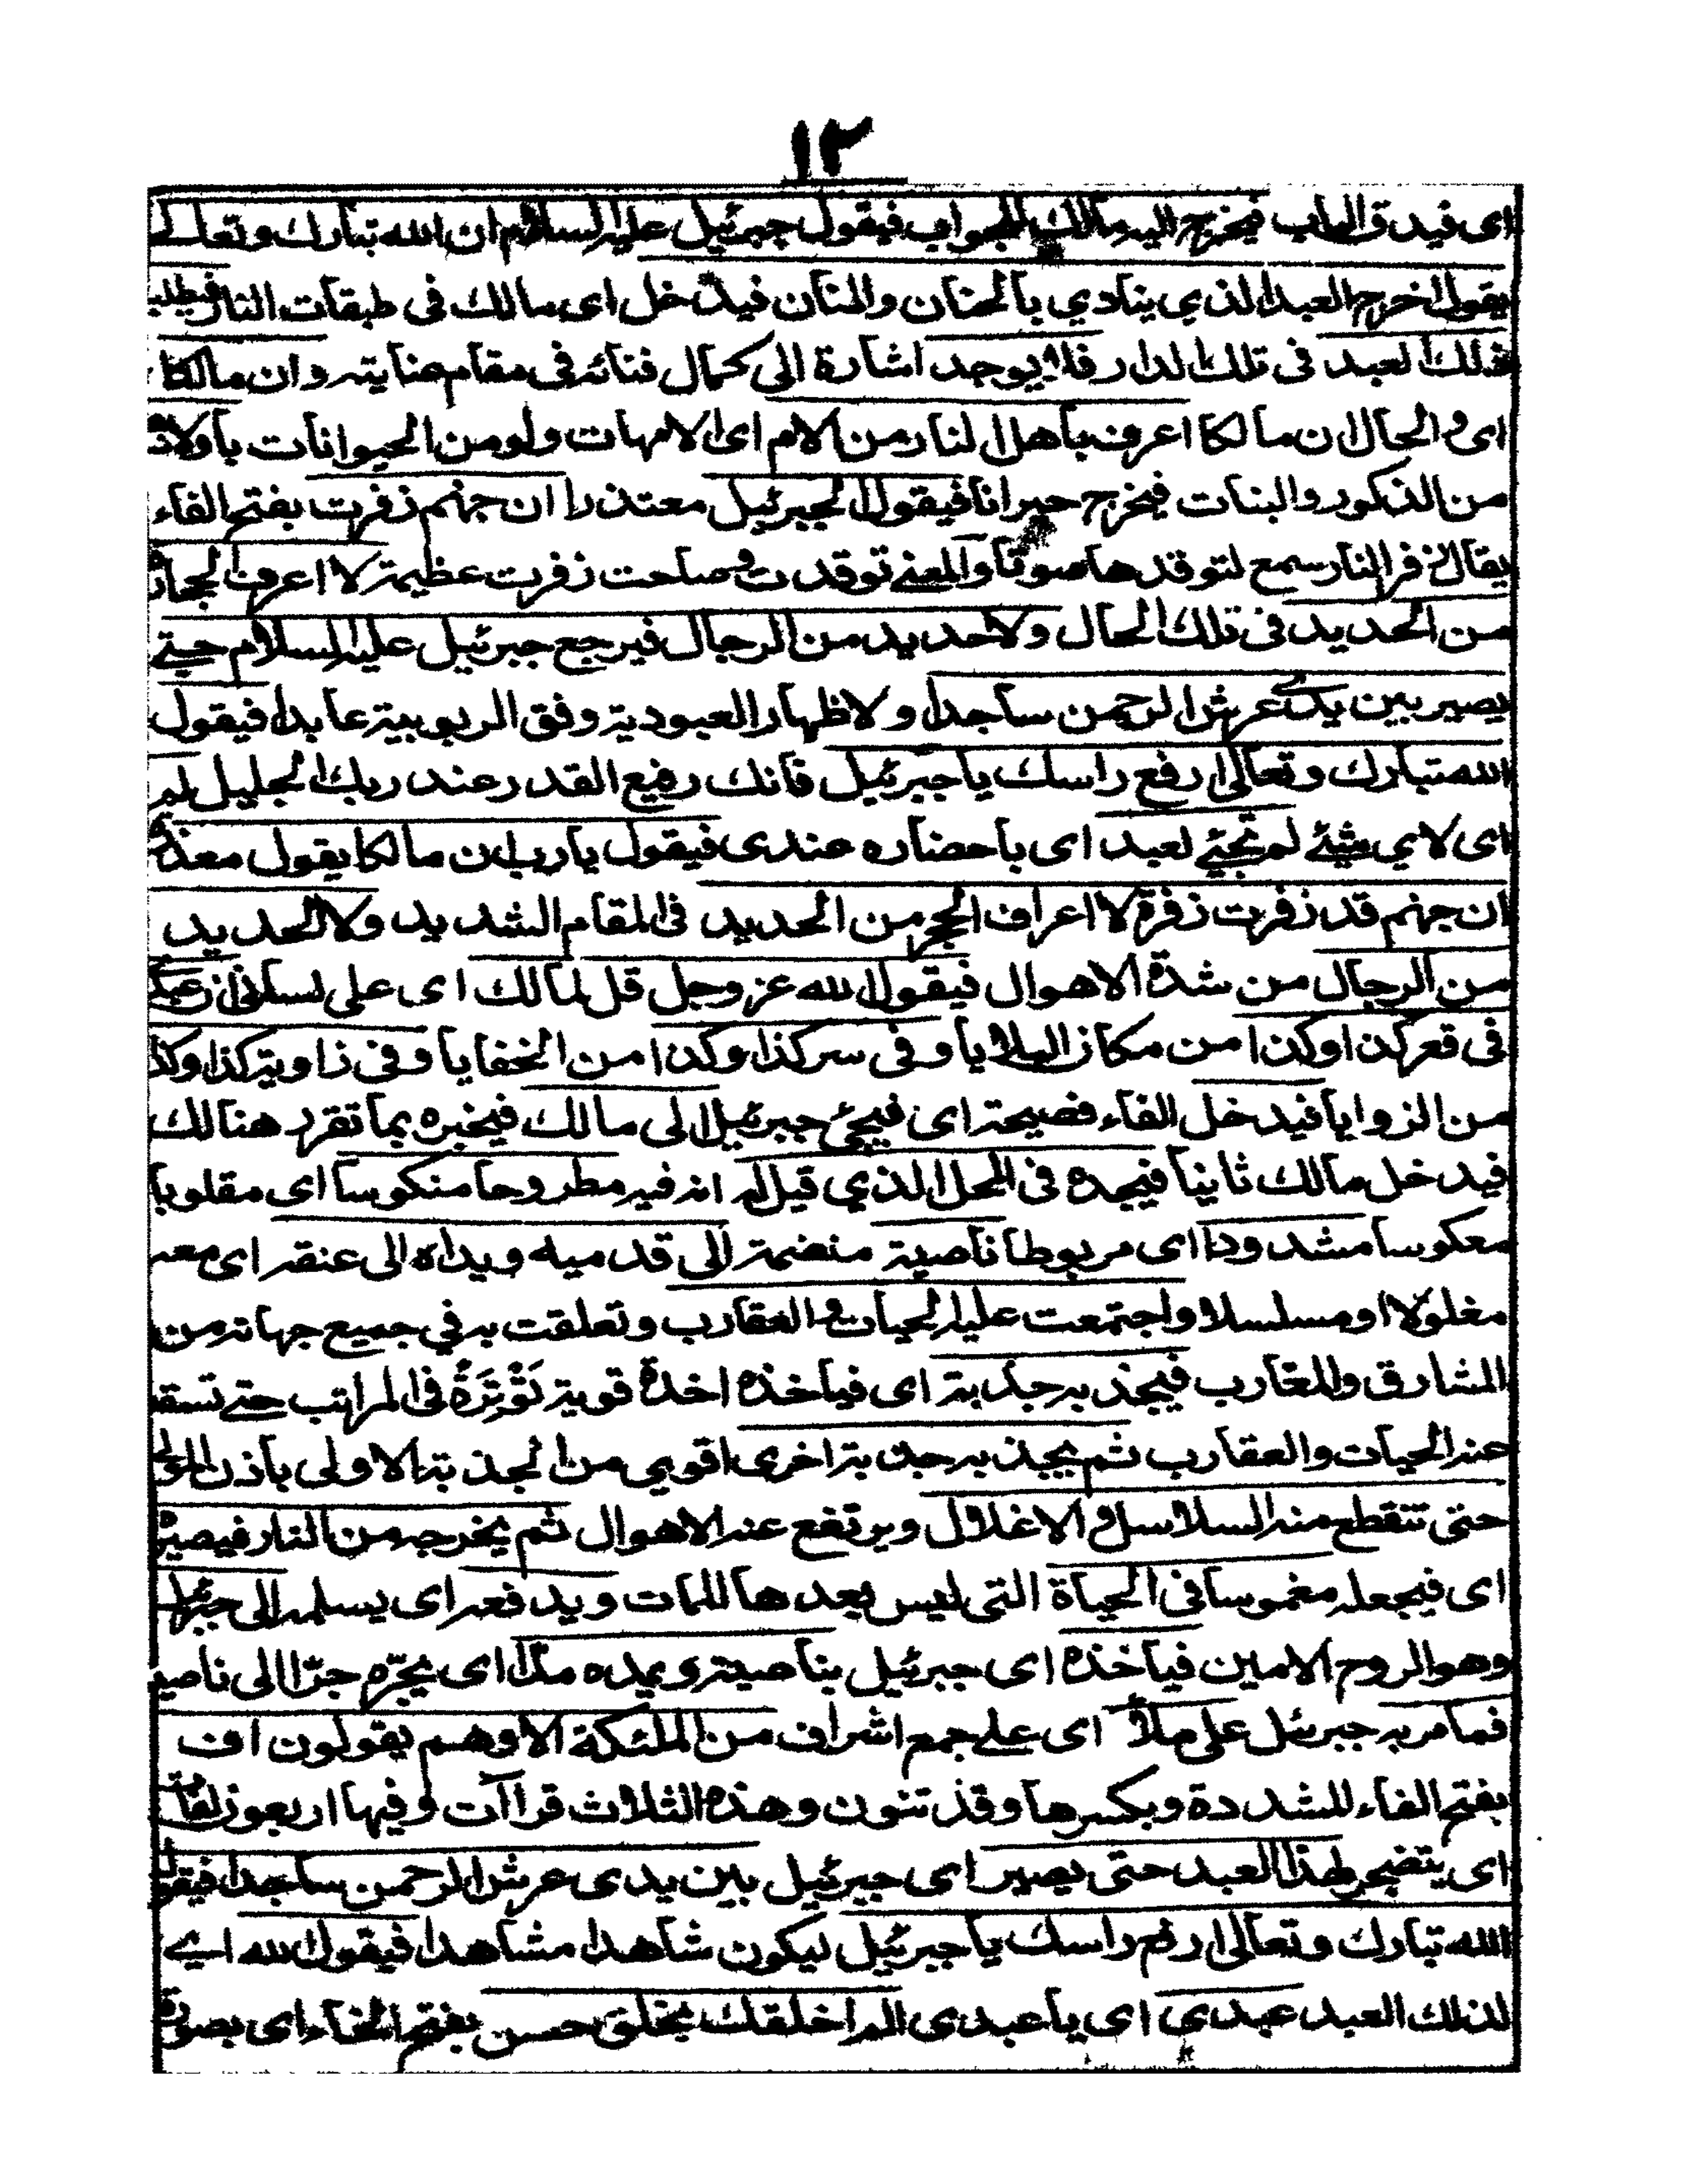 ١٢
اى فيدق الباب فيخرج اليه مالك للجواب فيقول جبرئيل عليه السلام ان الله تبارك وتعالى
يقول اخرج العبد الذي ينادي بالحنان والمنان فيدخل اى مالك فى طبقات النار فيطلب
ذلك العبد فى تلك الدار فلا يوجد اشارة الى كمال فنائه فى مقام عنايته وان مالكا
اى والحال ان مالكا اعرف باهل النار من الام اى الامهات ولو من الحيوانات باولادها
من الذكور والبنات فيخرج حيرانا فيقول لجبرئيل معتذرا ان جهنم زفرت بفتح الفاء
يقال زفر النار سمع لتوقدها صوتا والمعنے توقدت وصاحت زفرت عظيمة لا اعرف الحجارة
من الحديد فى تلك الحال ولا حديد من الرجال فيرجع جبرئيل عليه السلام حتے
يصير بين يدے عرش الرحمن ساجدا ولاظهار العبودية وفق الربوبية عابدا فيقول
الله تبارك وتعالى ارفع راسك يا جبرئيل فانك رفيع القدر عند ربك الجليل لم
اى لاي شيئے لم تجئے لعبد اى باحضاره عندى فيقول يارب ان مالكا يقول معذرة
ان جهنم قد زفرت زفرة لا اعراف الحجر من الحديد فى المقام الشديد ولا الحديد
من الرجال من شدة الاهوال فيقول الله عز وجل قل لمالك اى على لسانى ان عبدى
فى قعر كذا وكذا من مكان البلايا وفى سر كذا وكذا من الخفايا وفى زاوية كذا وكذا
من الزوايا فيدخل الفاء فصيحة اى فيجئ جبرئيل الى مالك فيخبره بما تقرر هنالك
فيدخل مالك ثانيا فيجده فى المحل الذي قيل له انه فيه مطروحا منكوسا اى مقلوبا
معكوسا مشدودا اى مربوطا ناصية منضمة الى قدميه ويداه الى عنقه اى معه
مغلولا او مسلسلا واجتمعت عليه الحيات والعقارب وتعلقت به في جميع جهاته من
المشارق والمغارب فيجذبه جذبة اى فياخذه اخذة قوية تَوْثِرَةً فى المراتب حتے تسقط
عنه الحيات والعقارب ثم يجذبه جذبة اخرى اقوي من الجذبة الاولى باذن المولى
حتى تنقطع منه السلاسل والاغلال ويرتفع عنه الاهوال ثم يخرجه من النار فيصيره
اى فيجعله مغموسا فى الحياة التى ليس بعدها الممات ويدفعه اى يسلمه الى جبرئيل
وهو الروح الامين فياخذه اى جبرئيل بناصيته ويمده مدّا اى يجرّه جرّا الى ناصيته
فما مر به جبرئيل على ملأ اى علے جمع اشراف من الملئكة الا وهم يقولون اف
بفتح الفاء المشددة وبكسرها وقد تنون وهذه الثلاث قراآت وفيها اربعون لغات
اى يتضجر لهذا العبد حتى يصير اى جبرئيل بين يدى عرش الرحمن ساجدا فيقول
الله تبارك وتعالى ارفع راسك يا جبرئيل ليكون شاهدا مشاهدا فيقول الله اي
لذلك العبد عبدي اى يا عبدى الم اخلقك بخلق حسن بفتح الخاء اى بصورة